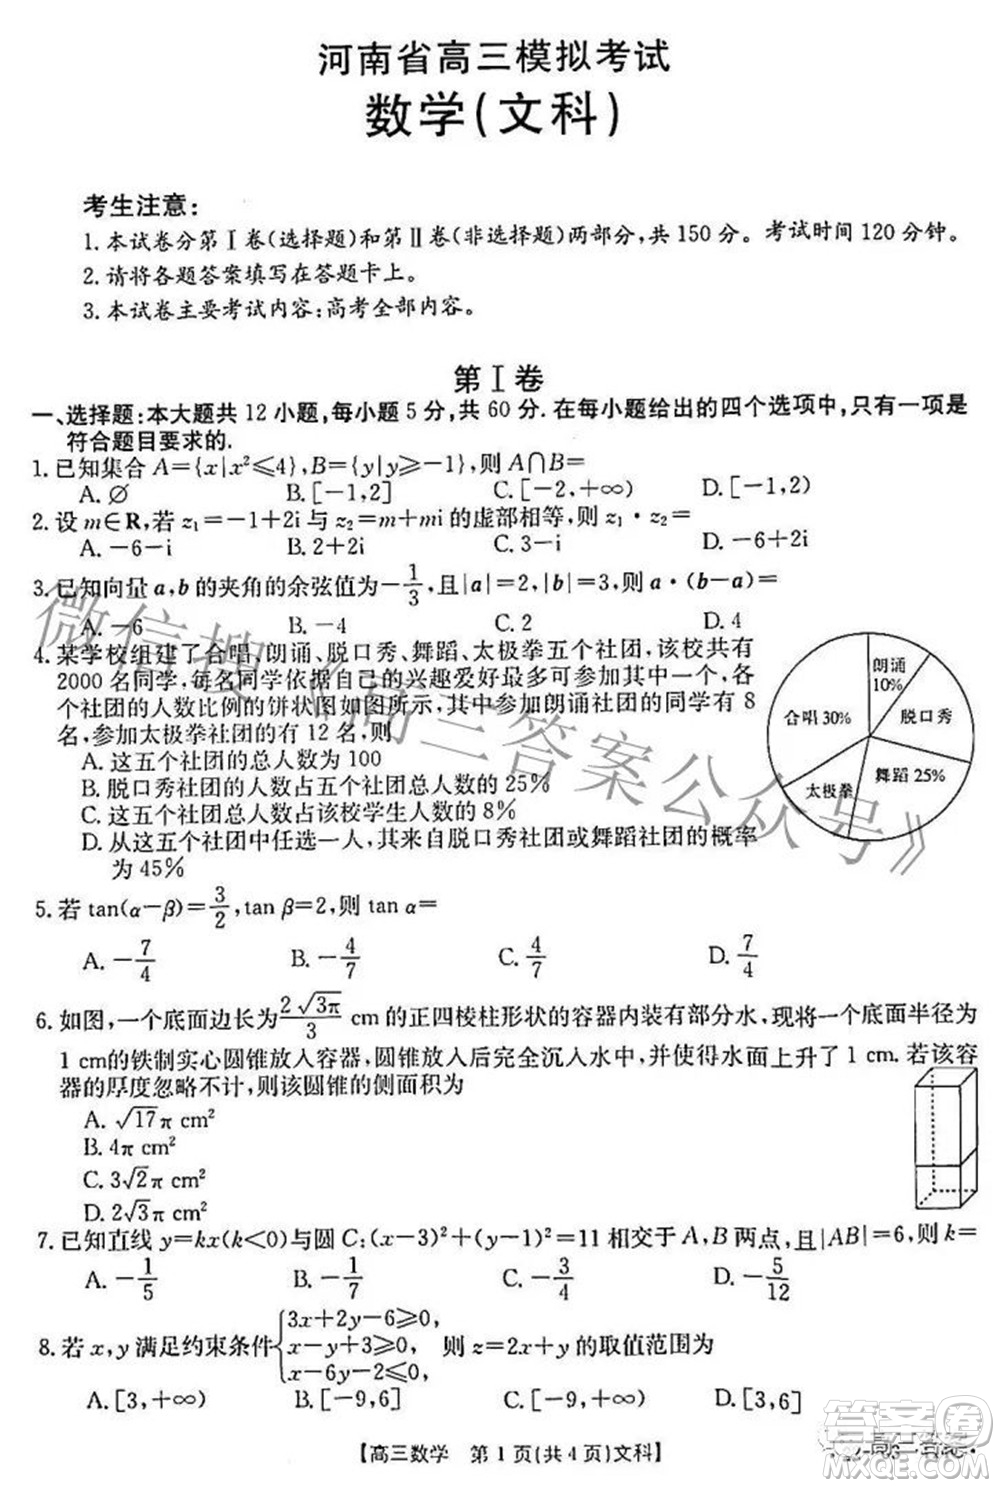 河南省高三模拟考试
数学(文科)
考生注意:
1.本试卷分第Ⅰ卷(选择题)和第Ⅱ卷(非选择题)两部分,共150分。考试时间120分钟。
2.请将各题答案填写在答题卡上。
3.本试卷主要考试内容:高考全部内容。
第Ⅰ卷
一、选择题:本大题共12小题,每小题5分,共60分.在每小题给出的四个选项中,只有一项是
符合题目要求的.
1.已知集合A={x|x²≤4},B={y|y≥-1},则A∩B=
A.∅ B.[-1,2] C.[-2,+∞) D.[-1,2)
2.设m∈R,若z₁=-1+2i与z₂=m+mi的虚部相等,则z₁·z₂=
A.-6-i B.2+2i C.3-i D.-6+2i
3.已知向量a,b的夹角的余弦值为-1/3,且|a|=2,|b|=3,则a·(b-a)=
A.-6 B.-4 C.2 D.4
4.某学校组建了合唱、朗诵、脱口秀、舞蹈、太极拳五个社团,该校共有
2000名同学,每名同学依据自己的兴趣爱好最多可参加其中一个,
各个社团的人数比例的饼状图如图所示,其中参加朗诵社团的同学有8
名,参加太极拳社团的有12名,则
A.这五个社团的总人数为100
B.脱口秀社团的人数占五个社团总人数的20%
C.这五个社团总人数占该校学生人数的8%
D.从这五个社团中任选一人,其来自脱口秀社团或舞蹈社团的概率
为45%
朗诵
10%
合唱30%
脱口秀
舞蹈25%
太极拳
5.若tan(α-β)=3/2,tan β=2,则tan α=
A.-7/4 B.-4/7 C.4/7 D.7/4
6.如图,一个底面边长为2√3π/3 cm的正四棱柱形状的容器内装有部分水,现将一个底面半径为
1 cm的铁制实心圆锥放入容器,圆锥放入后完全沉入水中,并使得水面上升了1 cm.若该容
器的厚度忽略不计,则该圆锥的侧面积为
A.√17π cm²
B.4π cm²
C.3√2π cm²
D.2√3π cm²
7.已知直线y=kx(k<0)与圆C:(x-3)²+(y-1)²=11相交于A,B两点,且|AB|=6,则k=
A.-1/5 B.-1/7 C.-3/4 D.-5/12
8.若x,y满足约束条件{3x+2y-6≥0, x-y+3≥0, x-6y-2≤0, 则z=2x+y的取值范围为
A.[3,+∞) B.[-9,6] C.[-9,+∞) D.[3,6]
【高三数学 第1页(共4页)文科】
微信搜《高三答案公众号》
答案圈